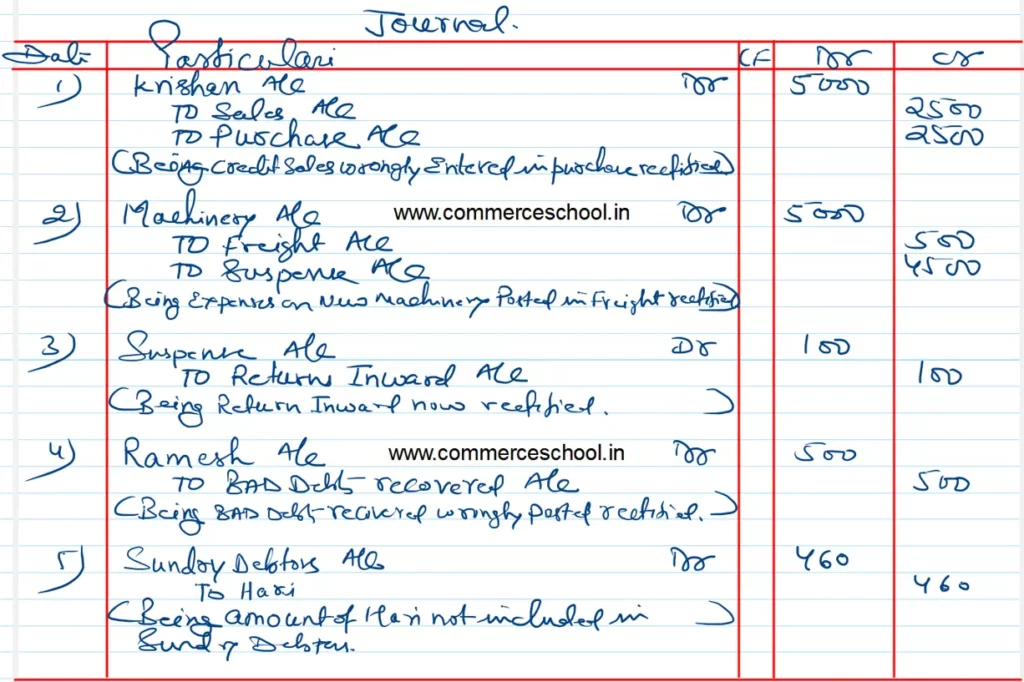 Journal.
Date Particulars CF Dr Cr
1) Krishan A/c Dr 5000
To Sales A/c 2500
To Purchase A/c 2500
(Being Credit Sales wrongly Entered in purchase rectified)
2) Machinery A/c www.commerceschool.in Dr 5000
To Freight A/c 500
To Suspense A/c 4500
(Being Expenses on New Machinery Posted in Freight rectified)
3) Suspense A/c Dr 100
To Returns Inward A/c 100
(Being Return Inward now rectified.)
4) Ramesh A/c www.commerceschool.in Dr 500
To BAD Debts recovered A/c 500
(Being BAD Debt recovered wrongly posted rectified.)
5) Sundry Debtors A/c Dr 460
To Hari 460
(Being amount of Hari not included in)
Sundry Debtors.